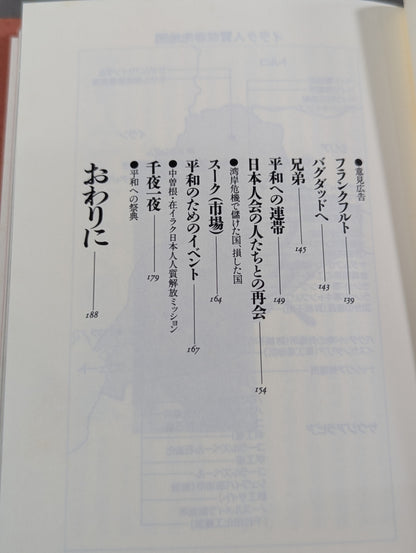 ●意見広告
フランクフルト 139
バグダッドへ 143
兄弟 145
平和への連帯 149
日本人会の人たちとの再会 154
●湾岸危機で儲けた国、損した国
スーク(市場) 164
平和のためのイベント 167
●中曽根・在イラク日本人人質解放ミッション
千夜一夜 179
●平和への祭典
おわりに 188